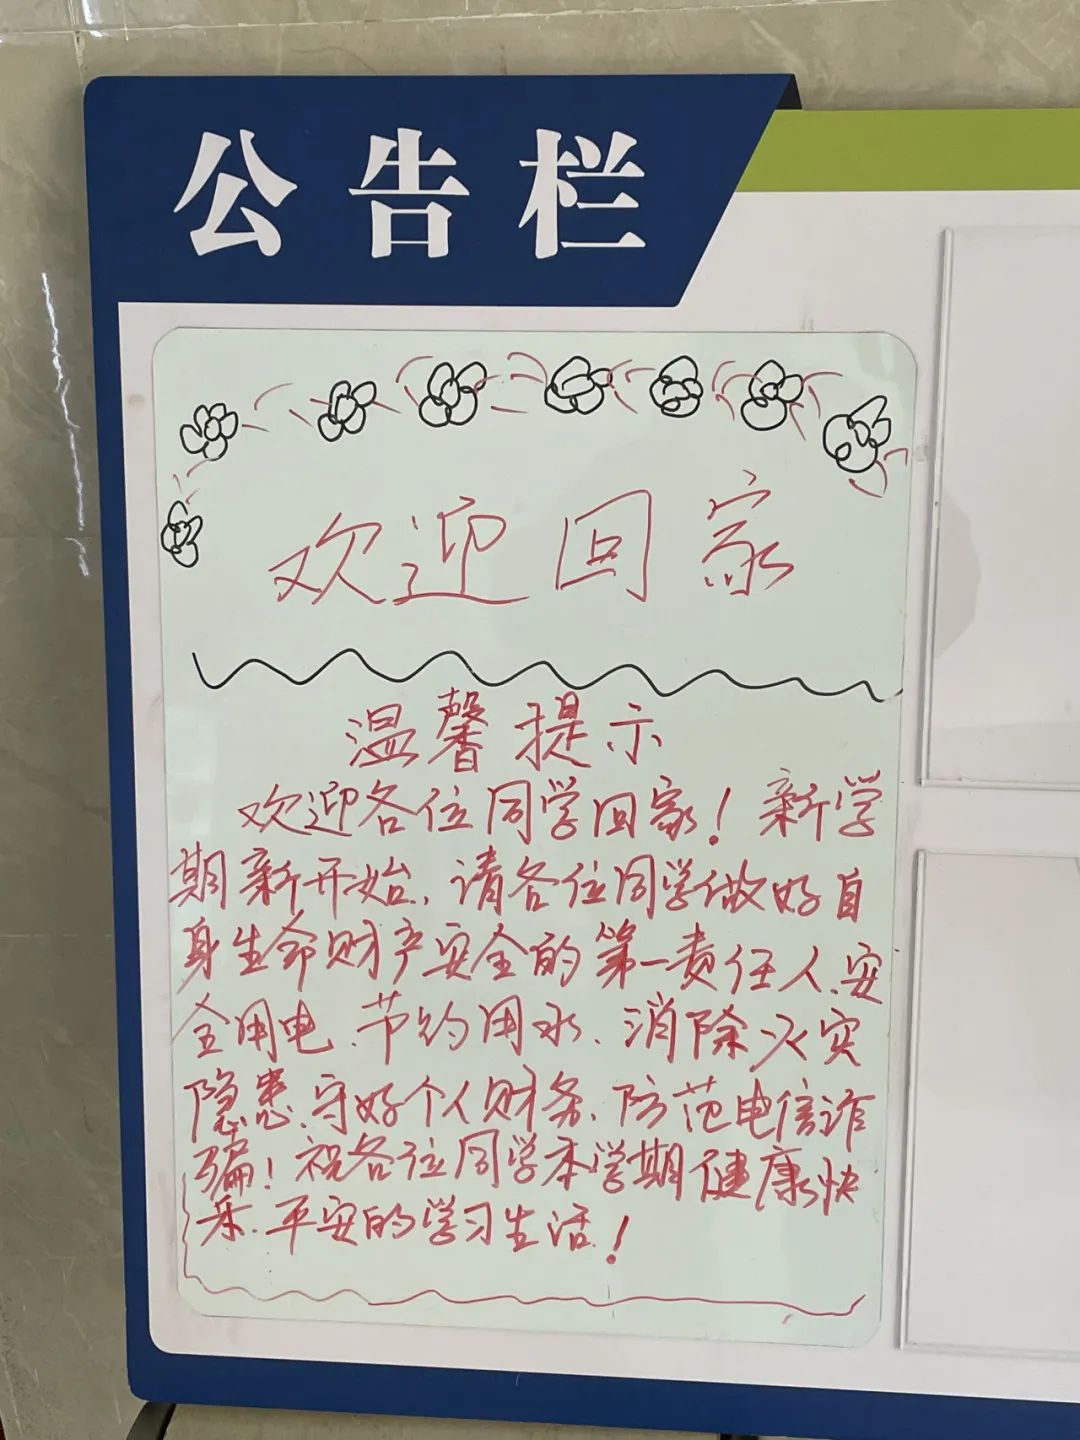 公告栏
欢迎回家
温馨提示
欢迎各位同学回家！新学
期新开始，请各位同学做好自
身生命财产安全的第一责任人、安
全用电、节约用水、消除火灾
隐患、守好个人财务、防范电信诈
骗！祝各位同学本学期健康快
乐、平安的学习生活！